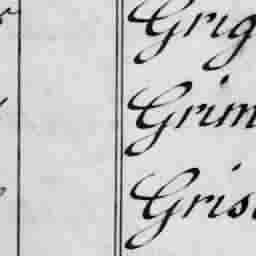 Grig
Grim
Gris